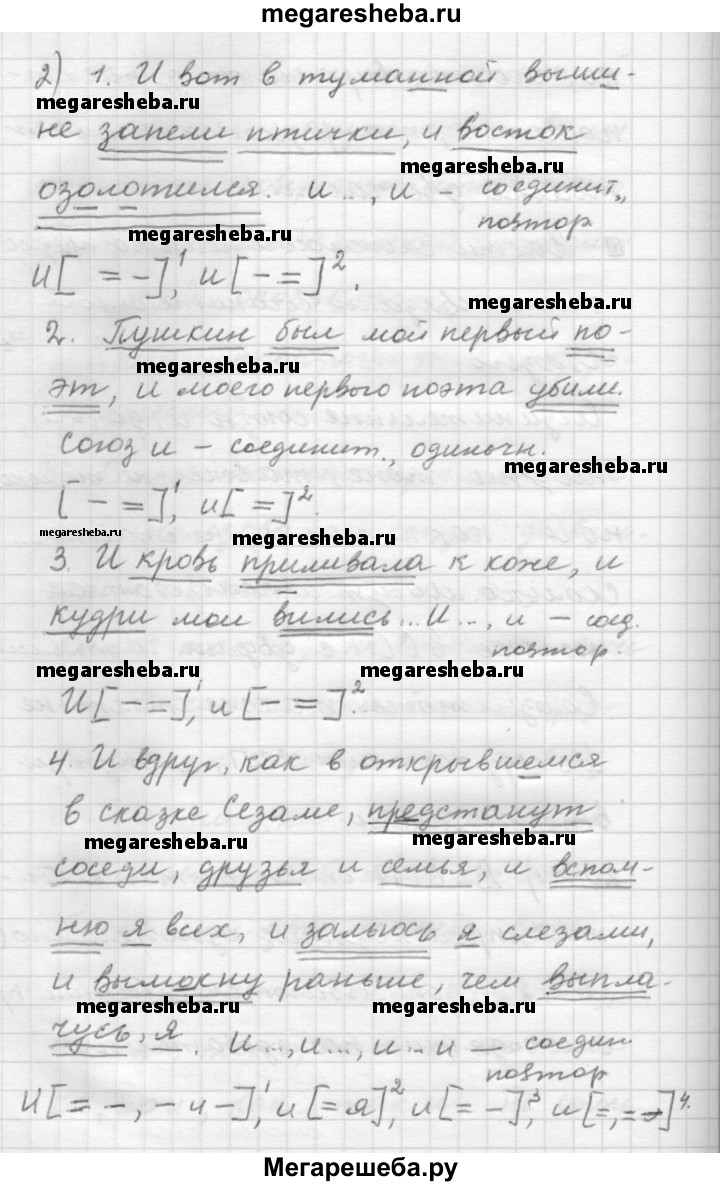 megaresheba.ru
2) 1. И вот в туманной выши-
megaresheba.ru
не запели птички, и восток
megaresheba.ru
озолотился. И..., и – соединит.,
повтор
megaresheba.ru
И[ = –]¹, и [ – = ]².
megaresheba.ru
2. Пушкин был мой первый по-
megaresheba.ru
эт, и моего первого поэта убили.
Союз и – соединит., одиночн.
megaresheba.ru
[ – = ]¹, и [ = ]².
megaresheba.ru
megaresheba.ru
3. И кровь приливала к коже, и
кудри мои вились... И..., и – соед.
повтор.
megaresheba.ru
megaresheba.ru
И [ – = ]¹, и [ – = ]².
4. И вдруг, как в открывшемся
в сказке Сезаме, предстанут
megaresheba.ru
megaresheba.ru
соседи, друзья и семья, и вспом-
ню я всех, и зальюсь я слезами,
и вымокну раньше, чем выпла-
megaresheba.ru
megaresheba.ru
чусь, я. И..., и..., и... и – соедин
повтор
И [ = –, – и – ]¹, и [ = я ]², и [ = – ]³, и [ =, = – ]⁴.
Мегарешеба.ру